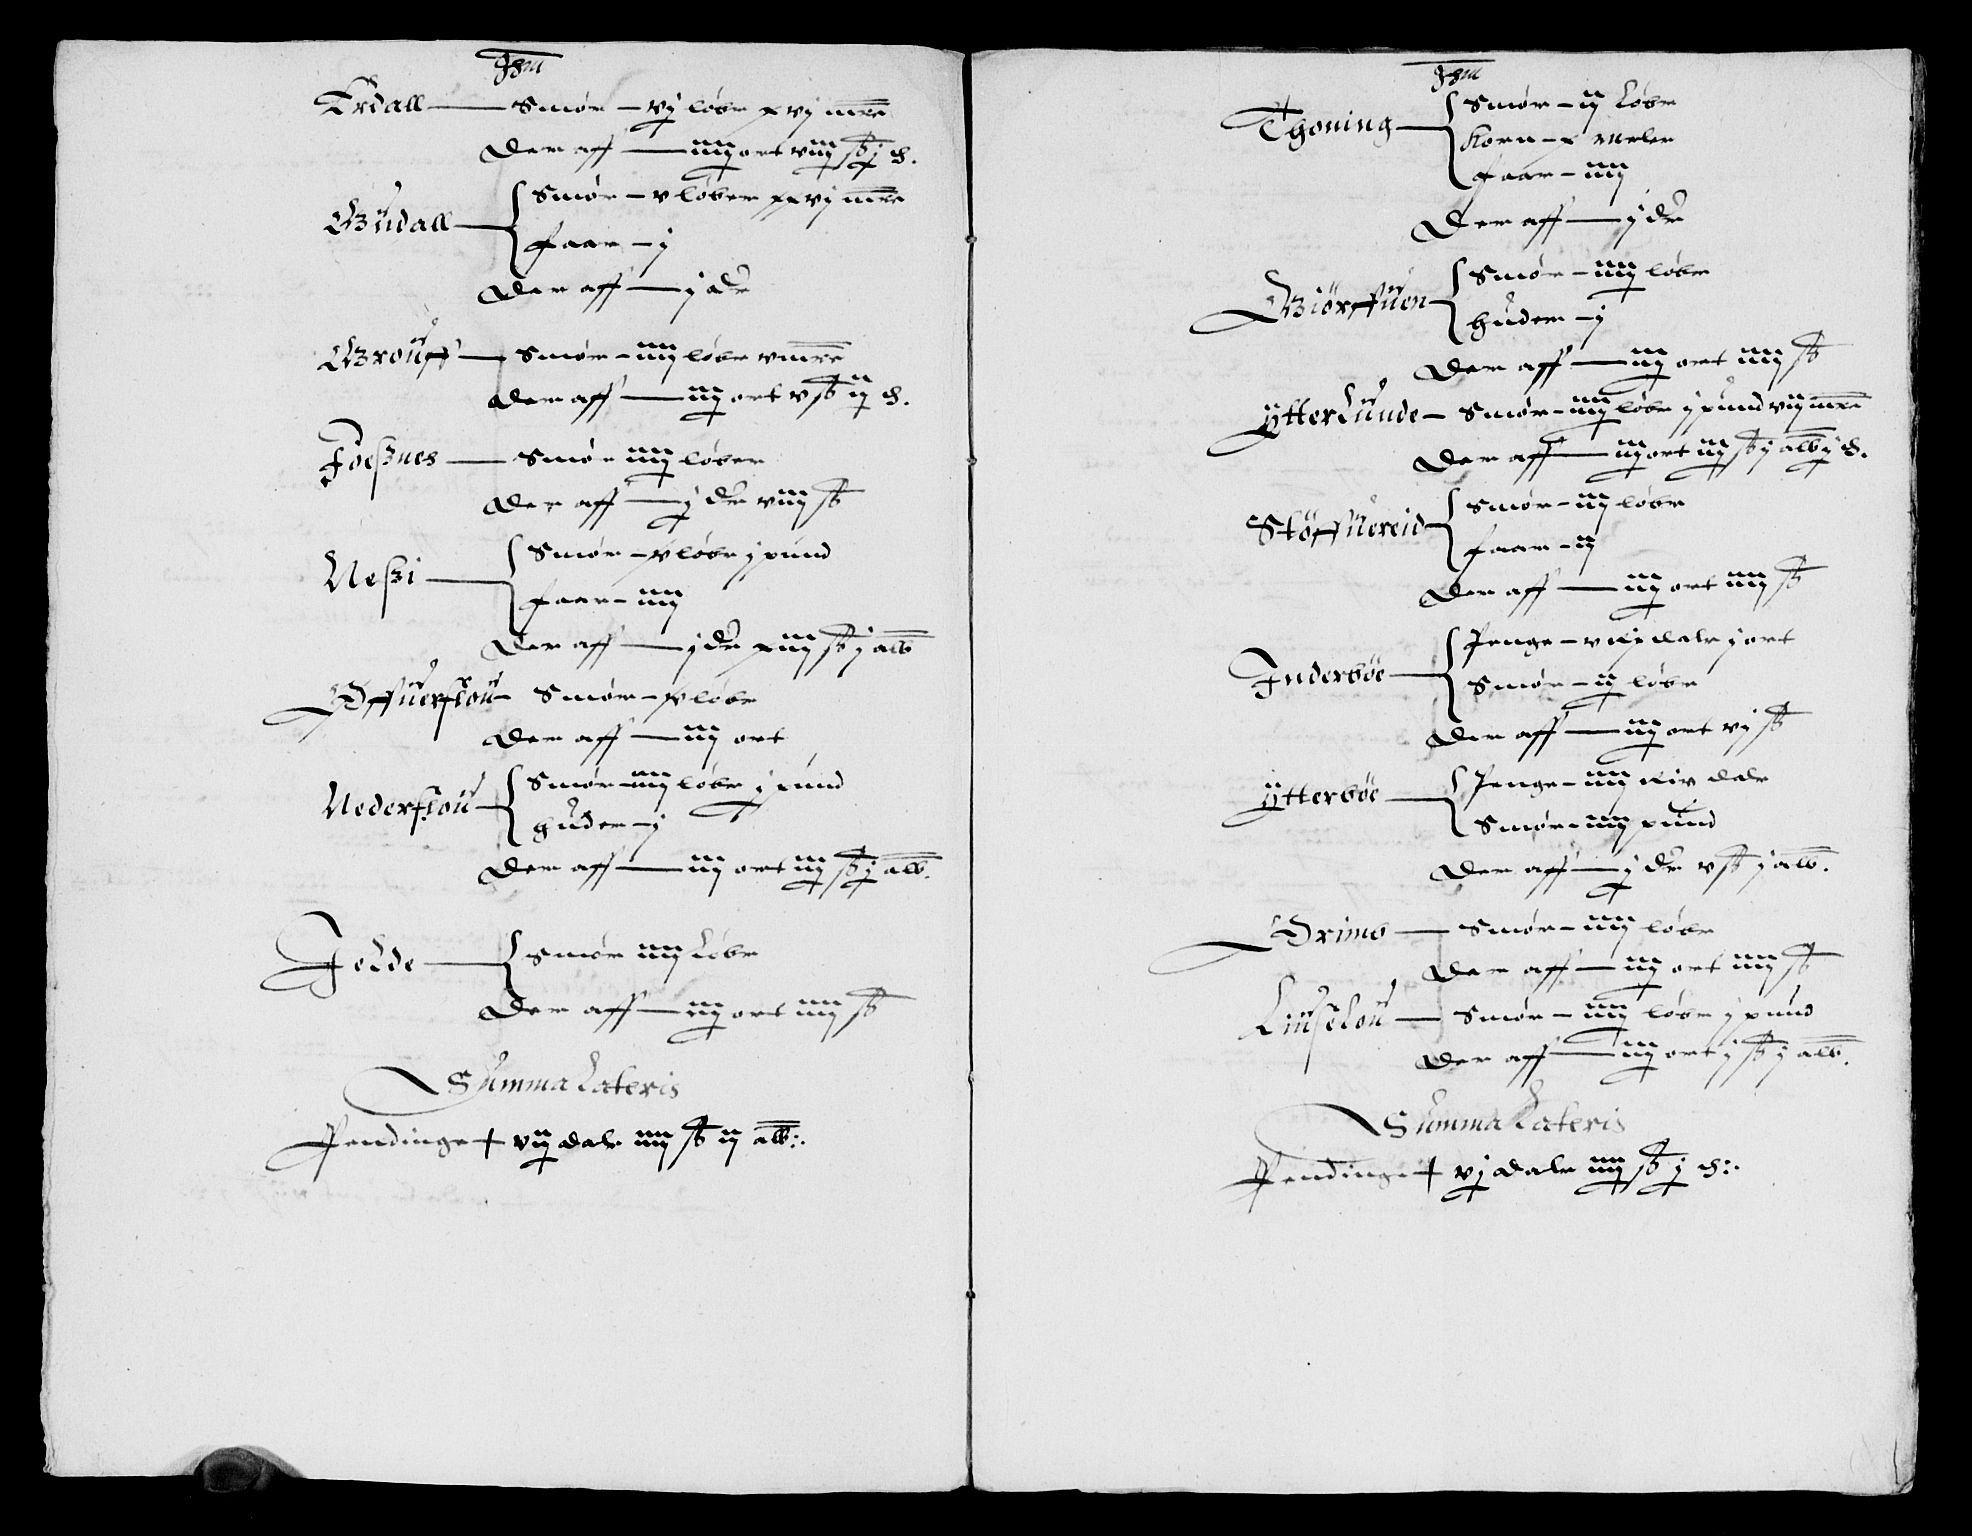 Ihm
Erdall — Smør — vj løbe xvj mrk
Der aff — iiij ort viij ß j ₰.
Gudall — Smør — v løber xxvj mrk
Faar — j
Der aff — j dr
Brouff — Smør — iiij løbe v mrk
Der aff — iij ort v ß ij ₰.
Foesnes — Smør iiij løber
Der aff — j dr viij ß
Neszi — Smør — v løbe j pund
Faar — iiij
Der aff — j dr xiij ß j alb
Offuerflou — Smør — v løbe
Der aff — iiij ort
Nederflou — Smør — iiij løbe j pund
Huder — j
Der aff — iij ort iij ß j alb.
Jolde — Smør iiij Løbe
Der aff — iij ort iiij ß
Summa Lateris
Pendinge + vij dalr iiij ß ij alb:.
Ihm
Thoning — Smør — ij Løbe
Korn — x meler
Faar — iiij
Der aff — j dr
Biørffuen — Smør — iiij løbe
Huder — j
Der aff — iij ort iiij ß
Ytterlunde — Smør — iiij løbe j pund vij mrk
Der aff — iij ort iij ß j alb j ₰.
Støffuereid — Smør — iij løbe
Faar — ij
Der aff — iij ort iiij ß
Inderbøe — Penge — v Rix dalr j ort
Smør — ij løbe
Der aff — iij ort vj ß
Ytterbøe — Penge — iiij Rix dalr
Smør — iiij pund
Der aff — j dr v ß j alb.
Grimo — Smør — iiij løbe
Der aff — iij ort iiij ß
Liuselou — Smør — iiij løbe j pund
Der aff — iij ort j ß j alb.
Summa Lateris
Pendinge + vj dalr iiij ß j ₰:.